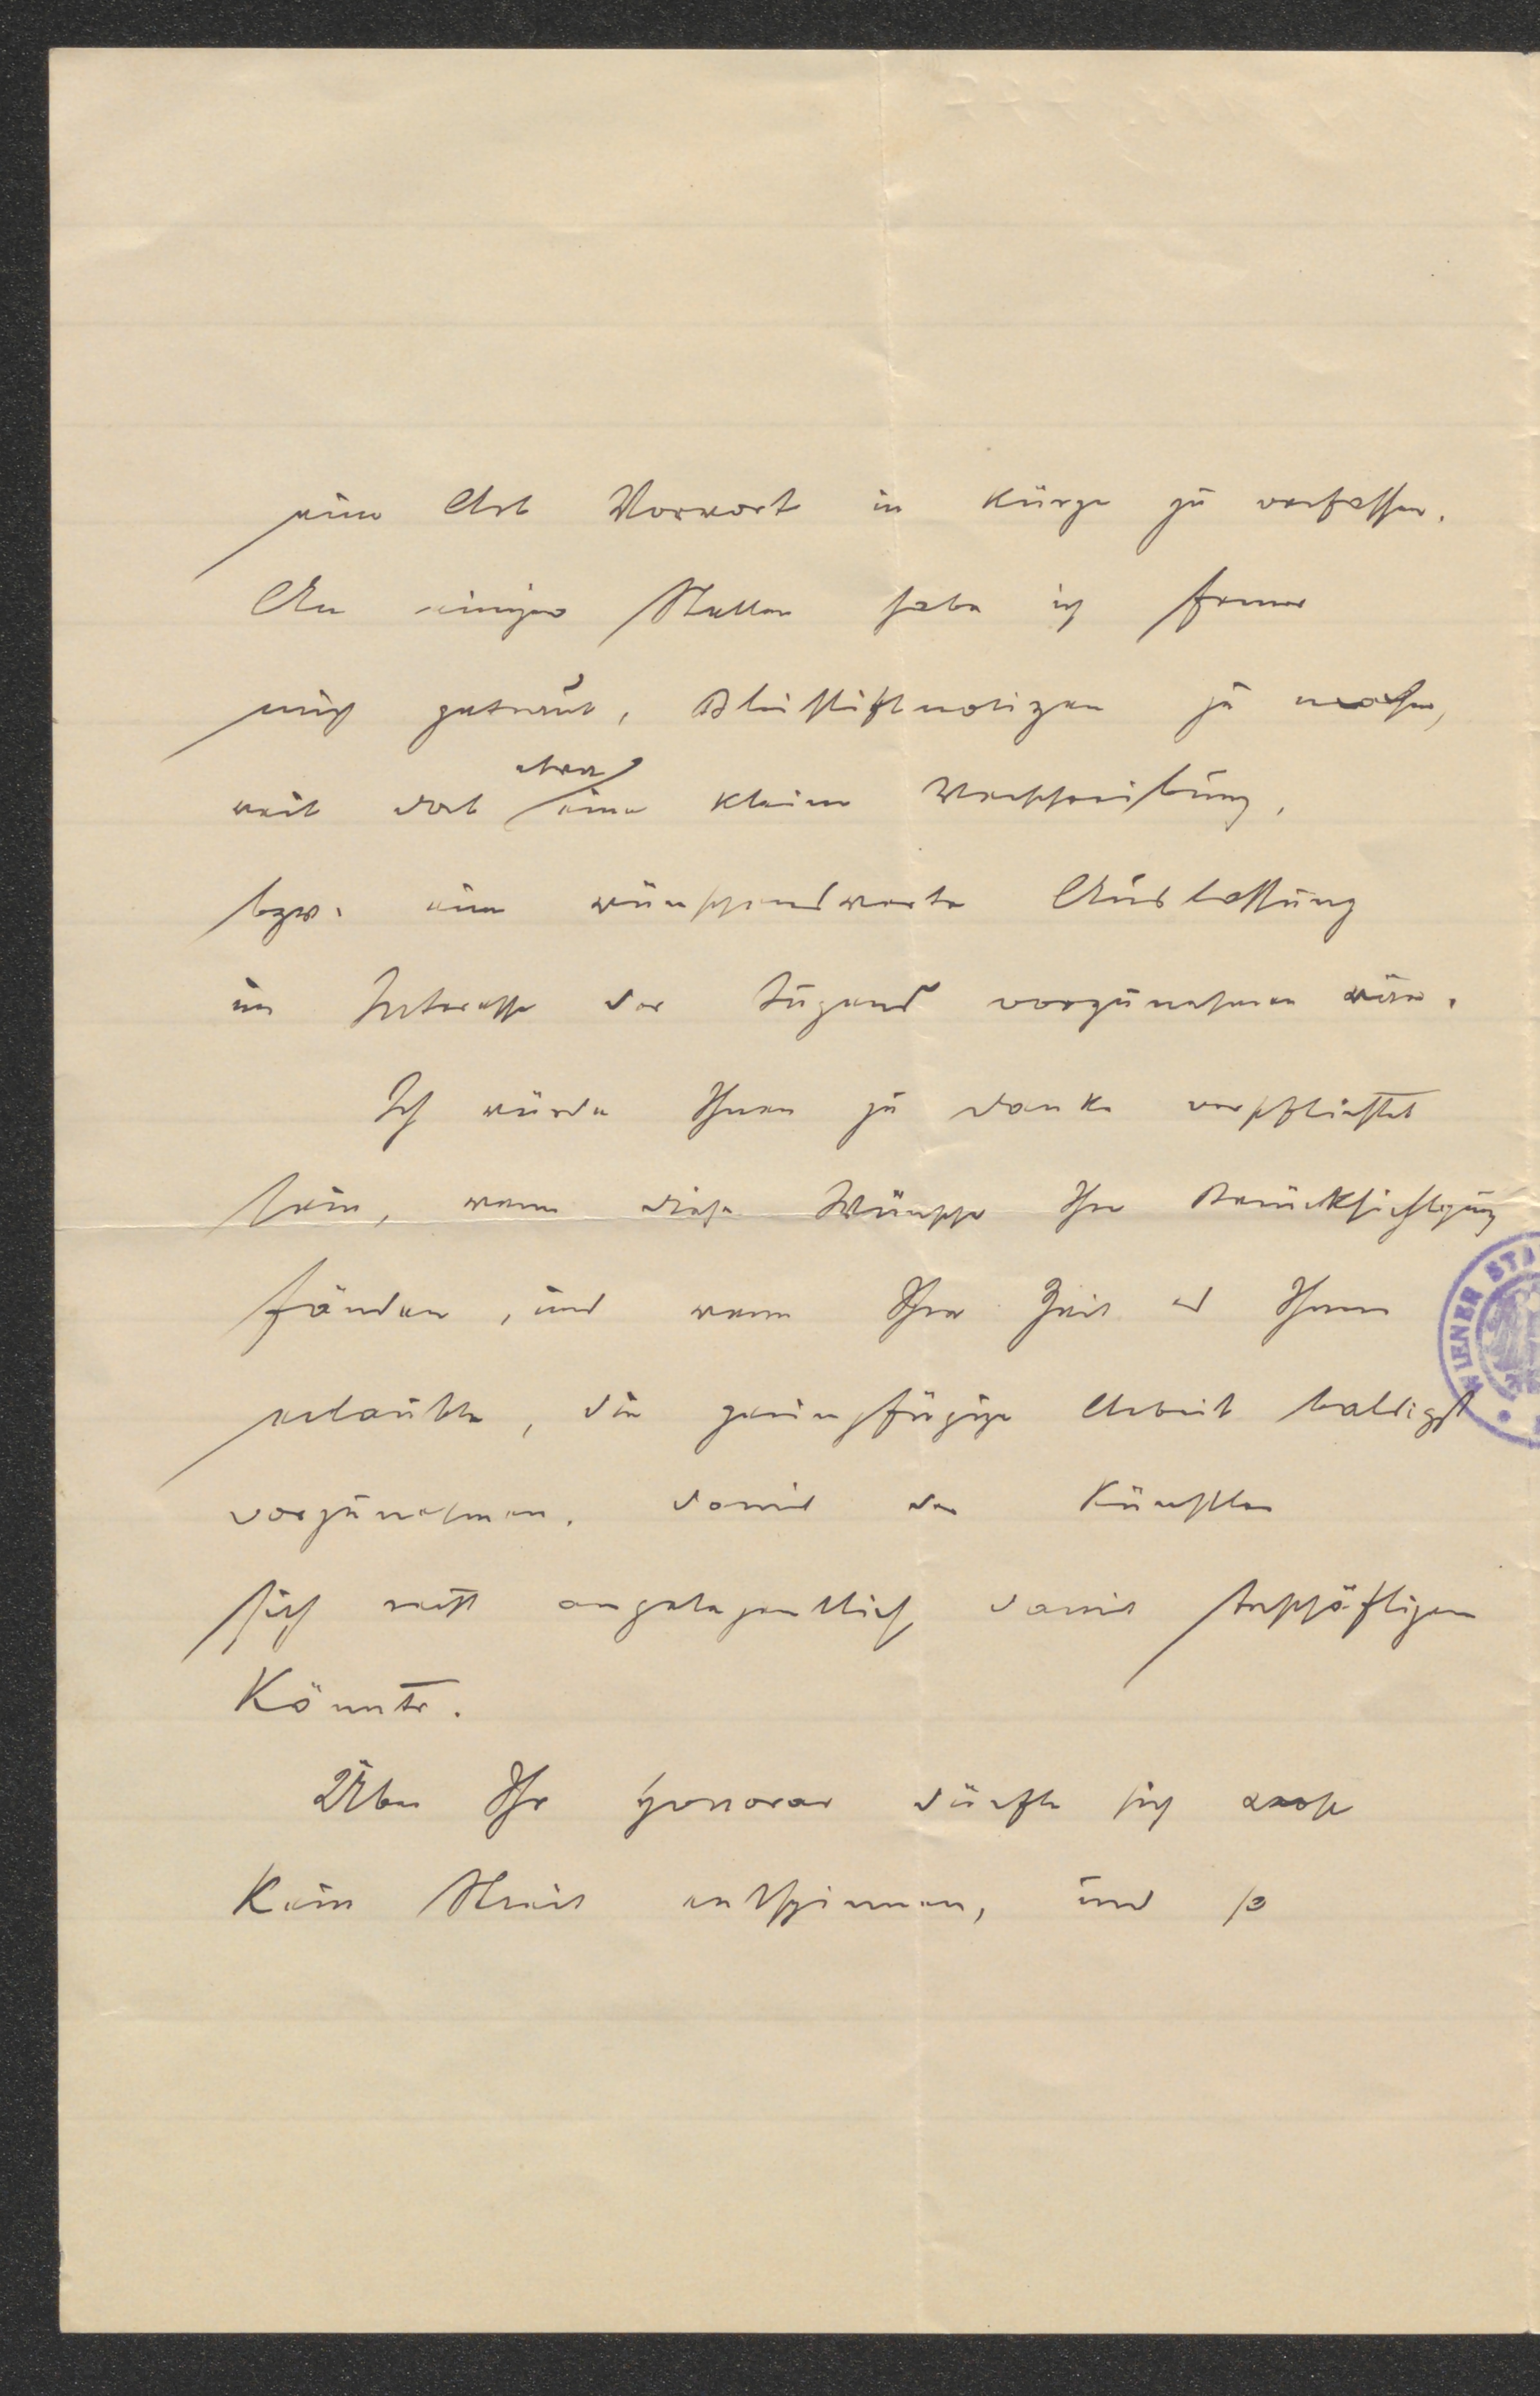 eine Art Vorwort in Kürze zu verfassen.
An einigen Stellen habe ich ferner
mich getraut, Bleistiftnotizen zu machen,
weil dort etwa eine kleine Verschreibung,
bzw. eine wünschenswerte Auslassung
im Interesse der Tugend vorzunehmen wäre.
Ich würde Ihnen zu Danke verpflichtet
sein, wenn diese Wünsche Ihre Berücksichtigung
fänden, und wenn Ihre Zeit es Ihnen
erlaubte, die geringfügige Arbeit baldigst
vorzunehmen, damit der Künstler
sich recht angelegentlich damit beschäftigen
könnte.
Über Ihr Honorar dürfte sich
kein Streit entspinnen, und so
WIENER STA